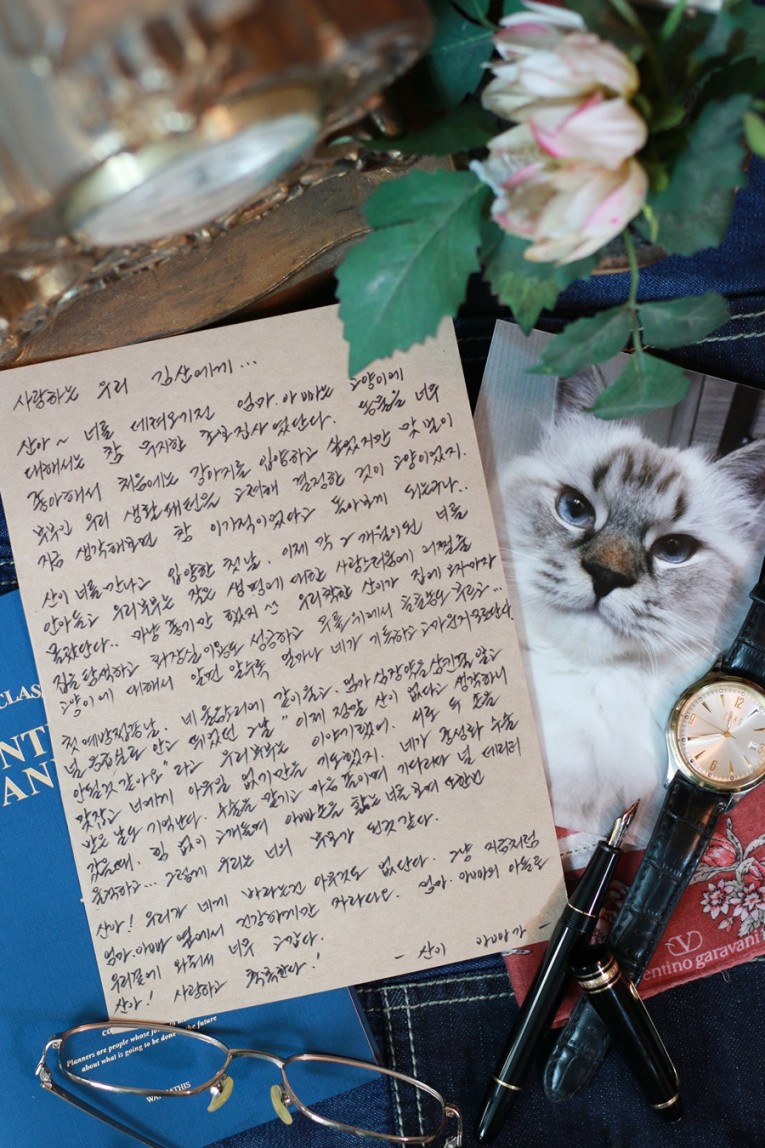 사랑하는 우리 김산에게…
산아~ 너를 데려오기전 엄마.아빠는 고양이에
대해서는 참 무지한 초보집사였단다. 동물을 너무
좋아해서 처음에는 강아지를 입양하고 싶었지만 맞벌이
부부인 우리 생활패턴을 고려해 결정한 것이 고양이였지.
지금 생각해보면 참 이기적이었다고 돌아보게 되는구나..
산이 너를 만나고 입양한 첫날. 이제 막 2개월이된 너를
안아들고 우리부부는 작은 생명에 대한 사랑스러움에 어쩔줄
몰랐단다.. 마냥 좋기만 했지^^ 우리착한 산이가 집에 오자마자
집을탐색하고 화장실이용도 성공하고 우리위에서 골골송도 부르고…
고양이에 대해서 알면 알수록 얼마나 네가 기특하고 고마운지모른단다.
첫예방접종날. 비를 같이들고. 엄마 심장약을 삼키고
널 응급실로 안고 뛰었던 그날 "이제 정말 산이 없다고 생각하니
안될것 같아요" 라고 우리부부는 이야기했어. 서로 두 손을
맞잡고 너에게 아무일 없기만을 기도했지. 네가 중성화 수술
받은 날도 기억난다. 수술을 맡기고 마음 졸이며 기다리다 널 데리러
갔을때. 힘 없이 고개들며 아빠손을 핥는 너를 보며 또한번
울컥하고… 그렇게 우리는 너의 부모가 된것 같다.
산아! 우리가 네게 바라는건 아무것도 없단다. 그냥 지금처럼
엄마.아빠 옆에서 건강하게만 자라다오. 엄마.아빠의 아들로
우리곁에 와줘서 너무 고맙다.
산아! 사랑하고 축복한다!
- 산이 아빠가 -
CLAS
NT
AN
CO
Planners are people whose jo
about what is going to be done
be future
WA MATHIS
V
entino garavani